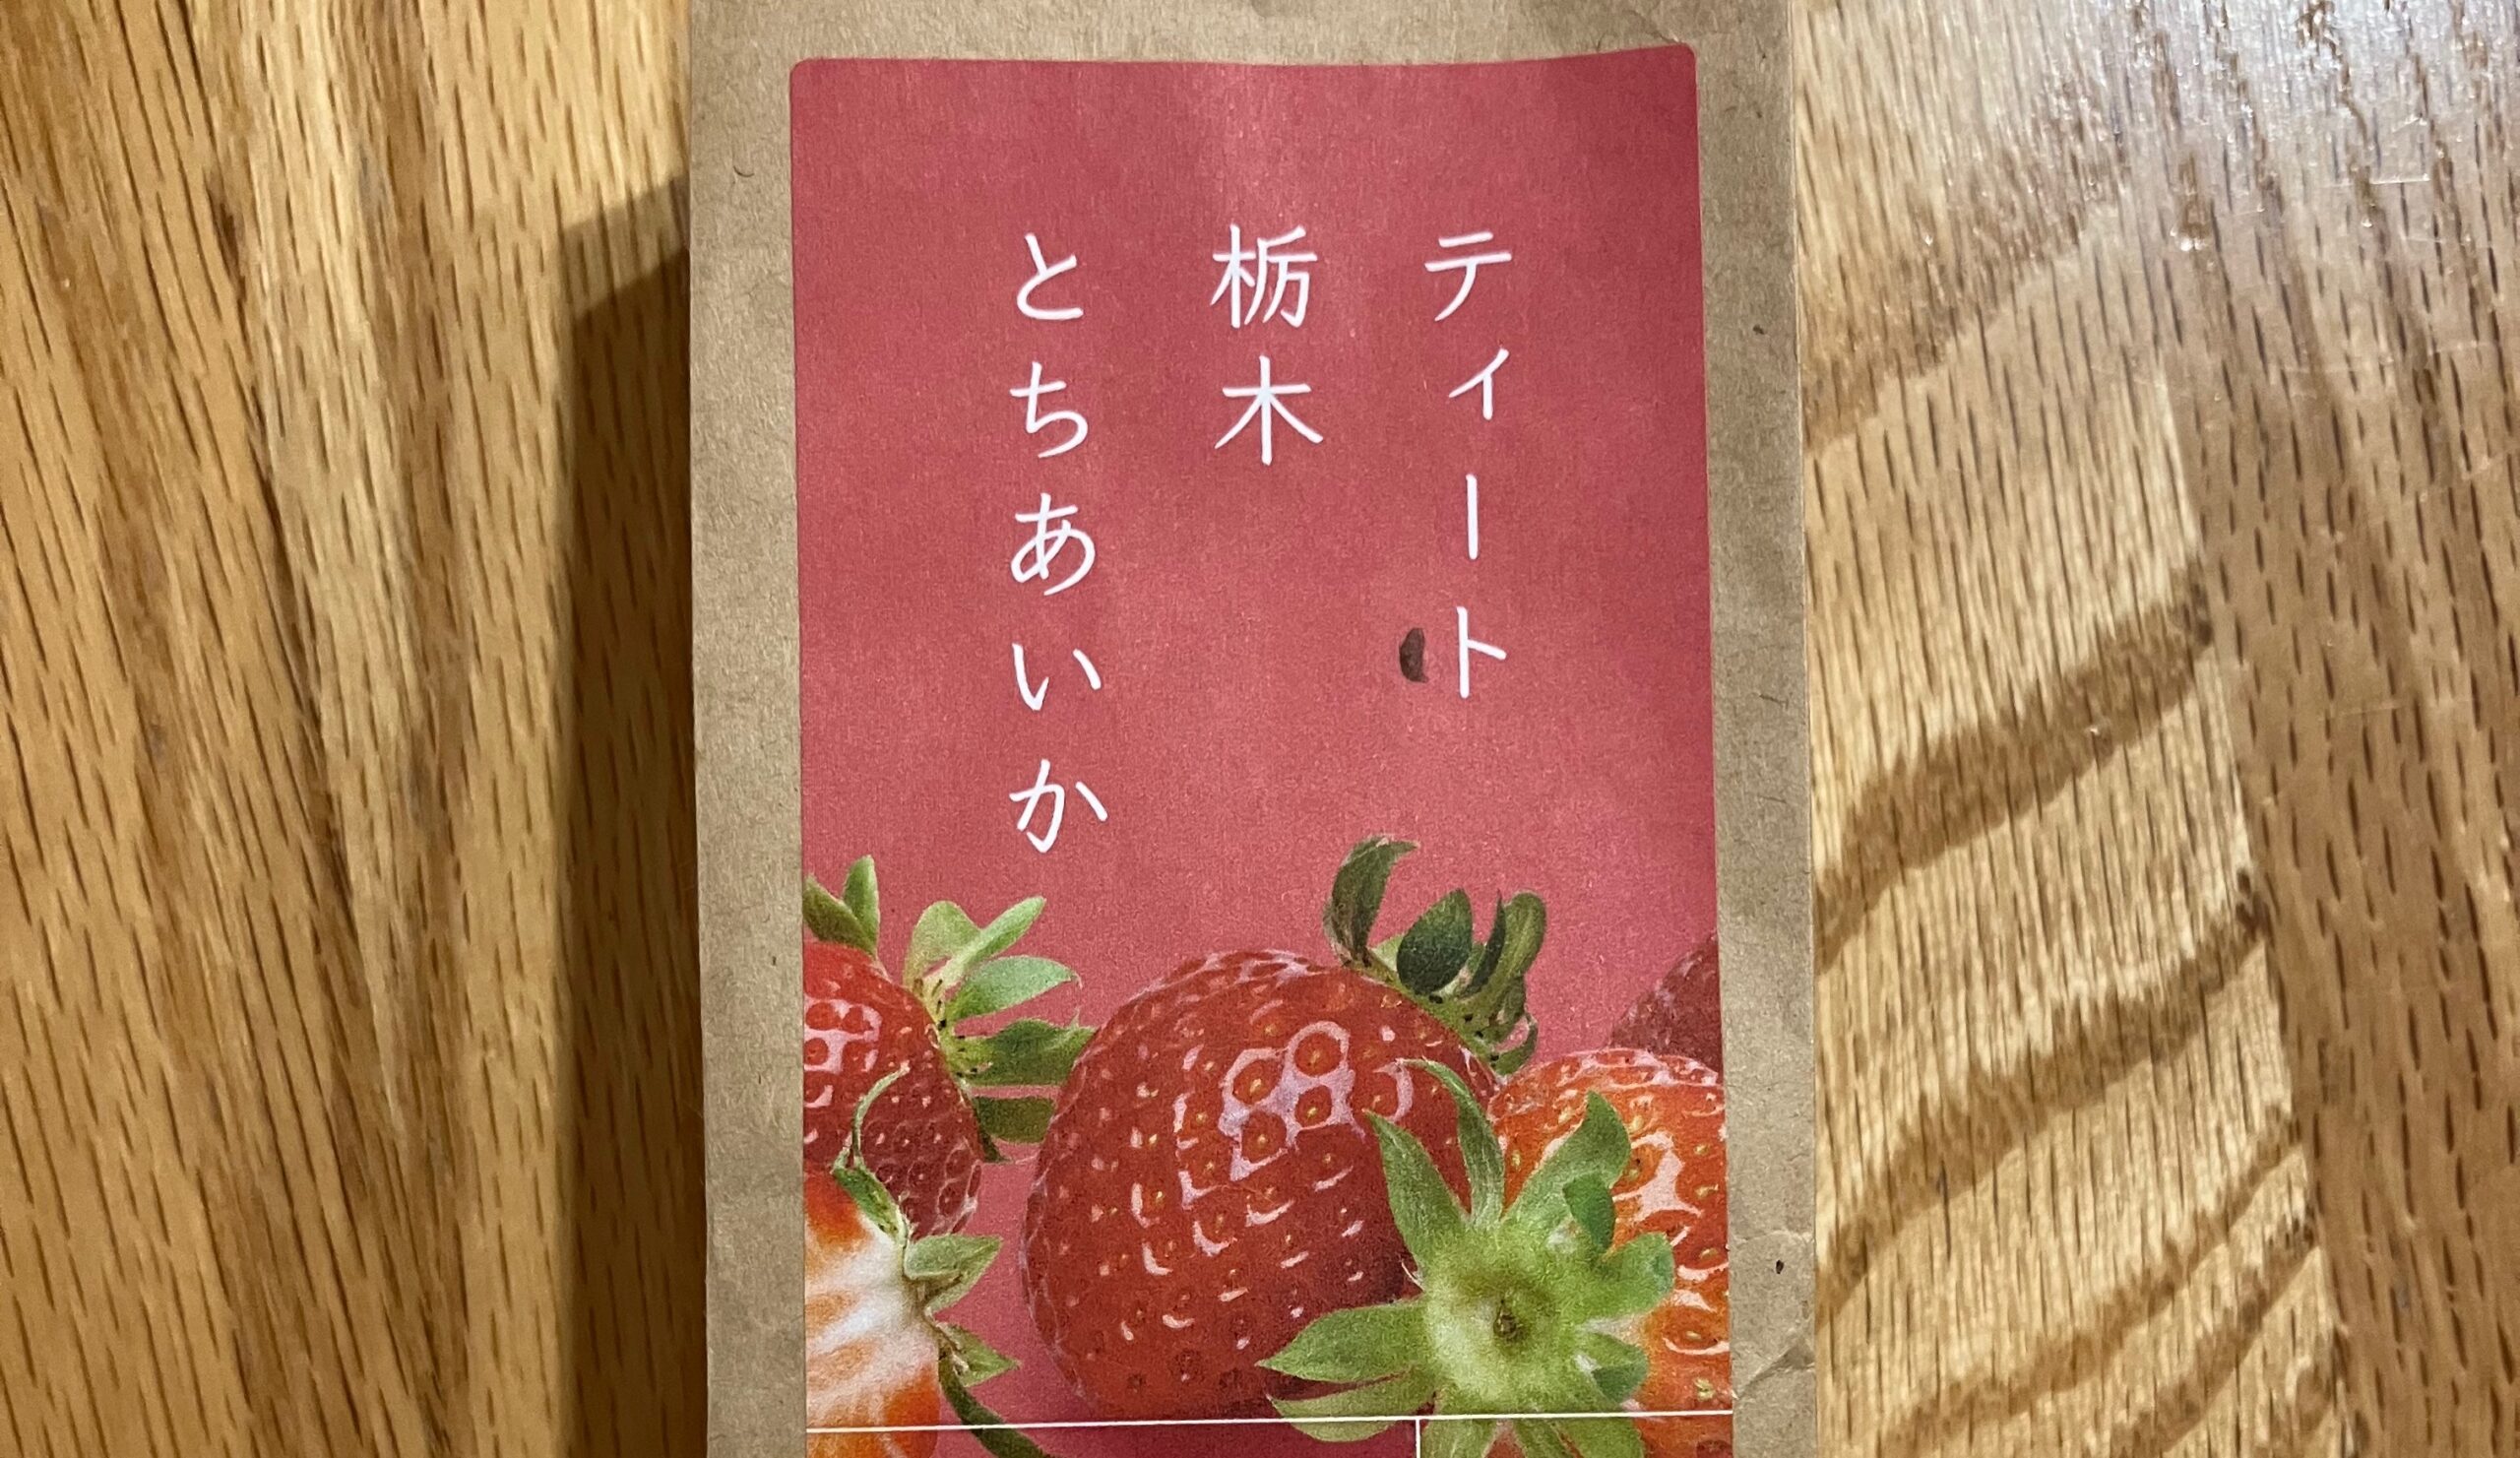 ティート
栃木
とちあいか